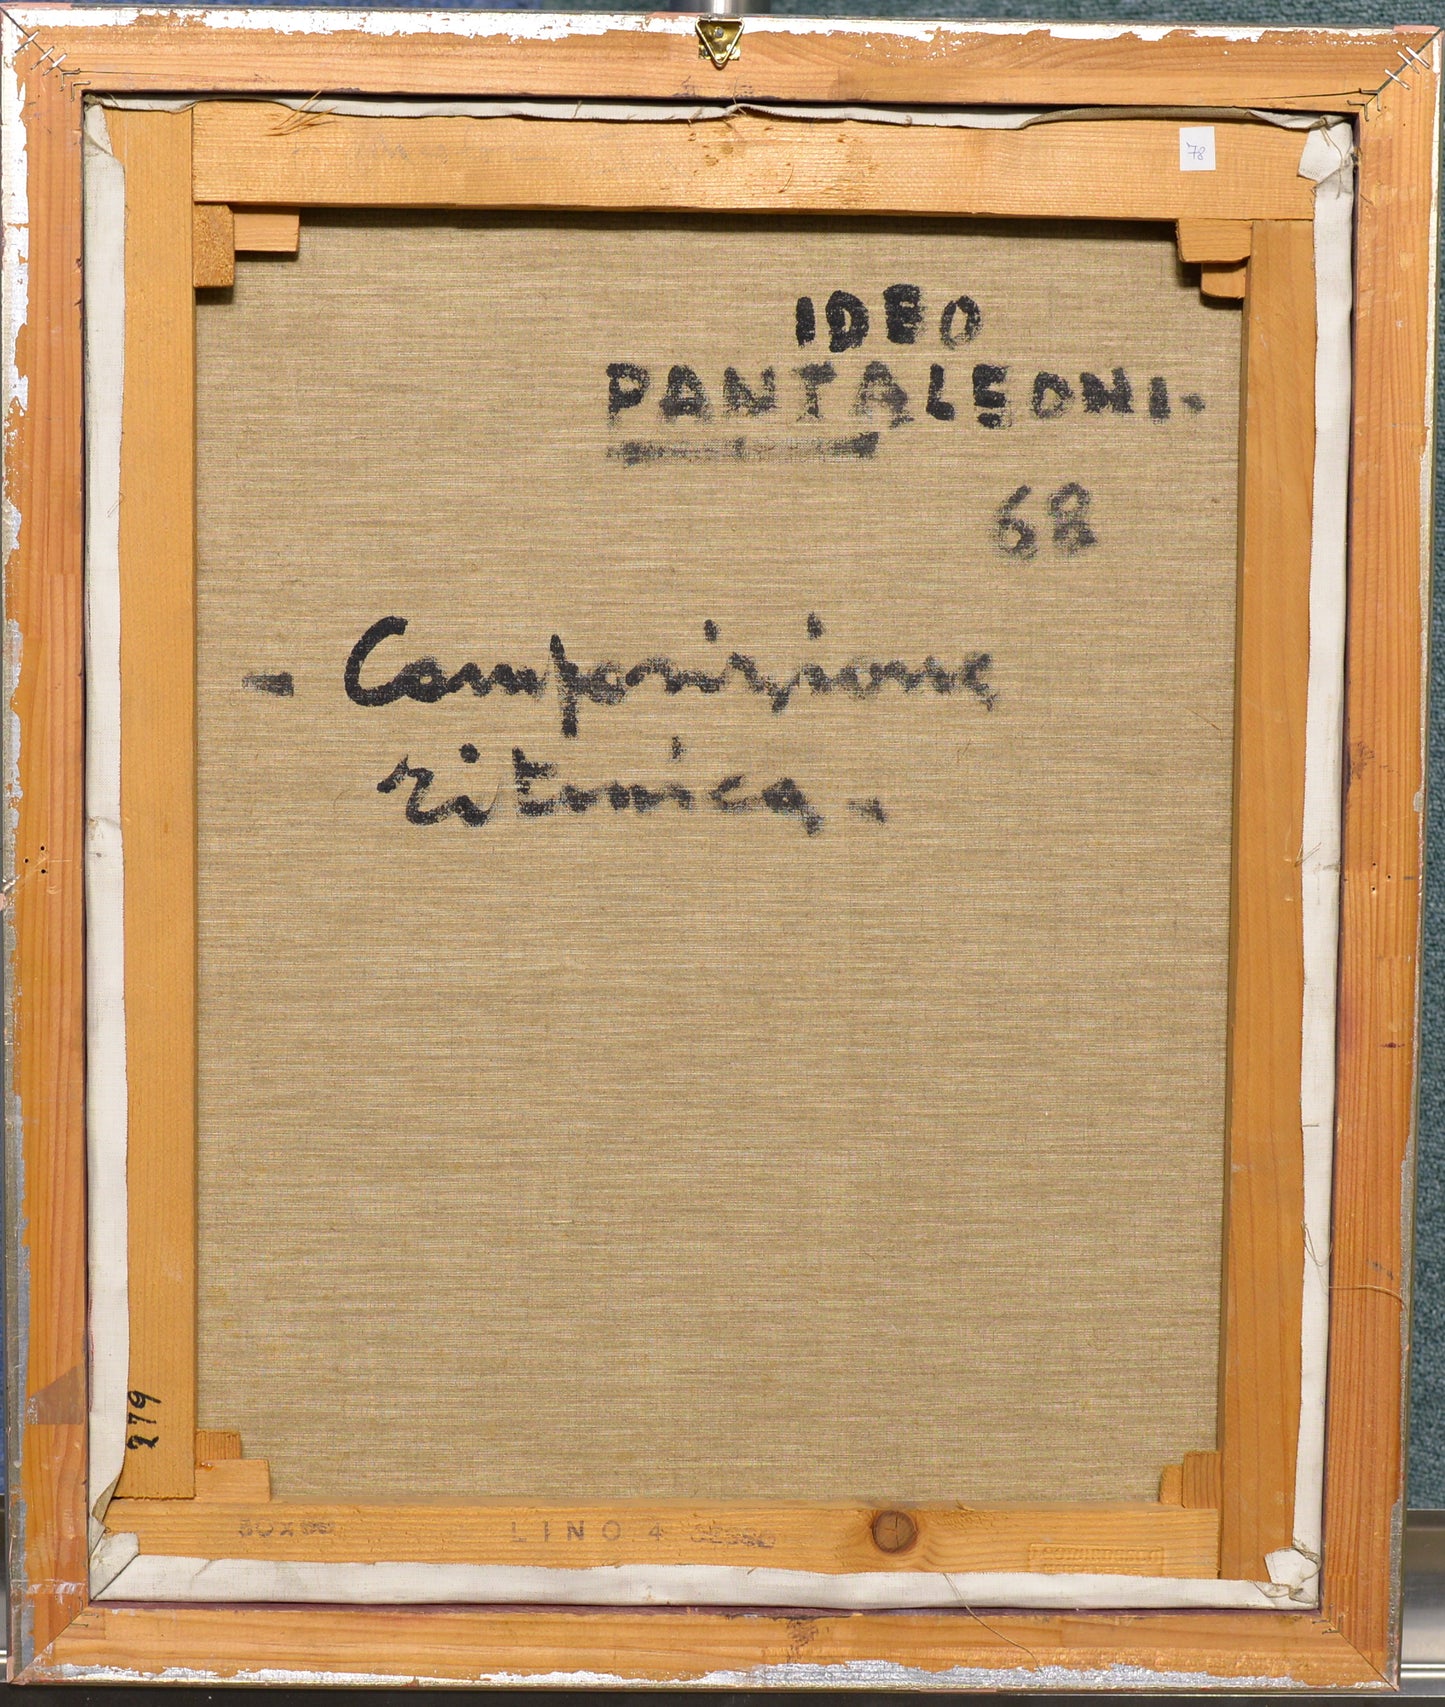 78
IDEO
PANTALEONI-
68
- Composizione
ritmica -
279
LINO 4